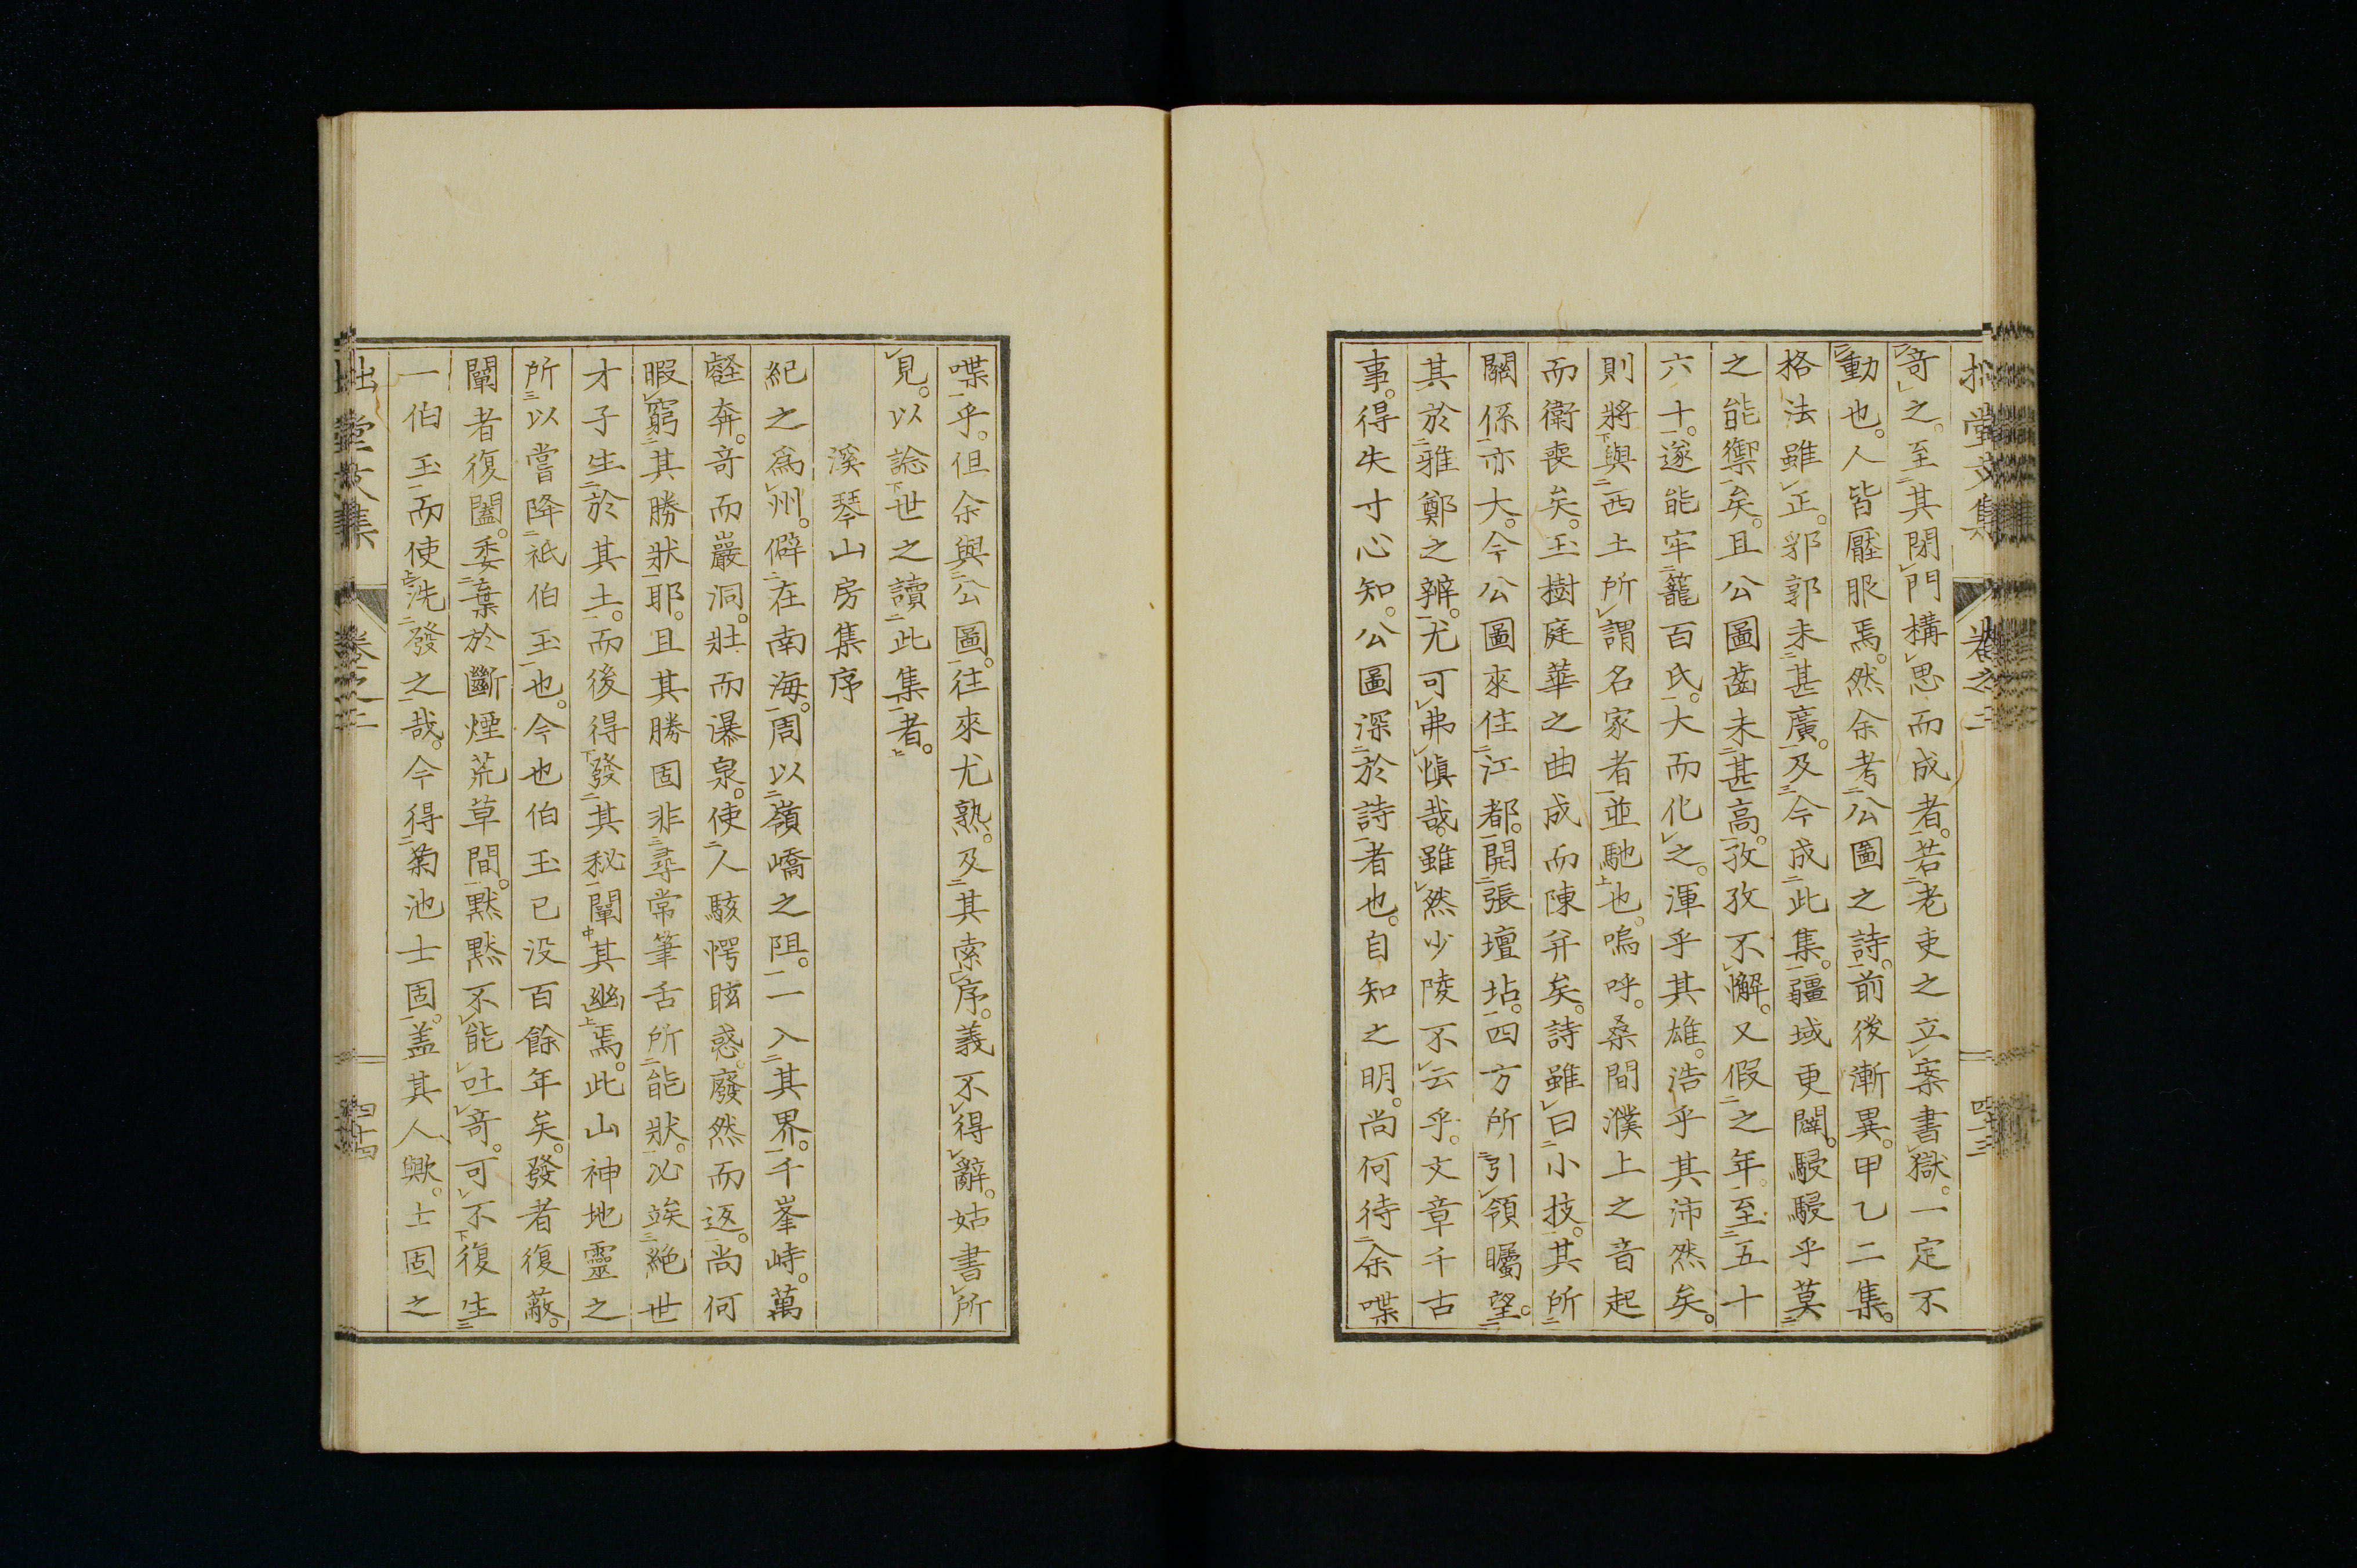 拙堂文集 卷之二 四十三
奇之。至其閉門構思而成者。若老吏之立案書獄。一定不
動也。人皆壓服焉。然余考公圖之詩。前後漸異。甲乙二集。
格法雖正。郛郭未甚廣。及今成此集。疆域更闢。駸駸乎莫
之能禦矣。且公圖齒未甚高。孜孜不懈。又假之年。至五十
六十。遂能牢籠百氏。大而化之。渾乎其雄。浩乎其沛然矣。
則將與西土所謂名家者並馳也。嗚呼。桑間濮上之音起
而衛喪矣。玉樹庭華之曲成而陳幷矣。詩雖曰小技。其所
關係亦大。今公圖來住江都。開張壇坫。四方所引領矚望。
其於雅鄭之辨。尤可弗愼哉。雖然少陵不云乎。文章千古
事。得失寸心知。公圖深於詩者也。自知之明。尚何待余喋
喋乎。但余與公圖。往來尤熟。及其索序。義不得辭。姑書所
見。以諗世之讀此集者。
溪琴山房集序
紀之爲州。僻在南海。周以嶺嶠之阻。一入其界。千峯峙。萬
壑奔。奇而巖洞。壯而瀑泉。使人駭愕眩惑。廢然而返。尚何
暇窮其勝狀耶。且其勝固非尋常筆舌所能狀。必竢絶世
才子生於其土。而後得發其秘闡其幽焉。此山神地靈之
所以嘗降祇伯玉也。今也伯玉已没百餘年矣。發者復蔽。
闡者復闔。委棄於斷煙荒草間。默默不能吐奇。可不復生
一伯玉而使洗發之哉。今得菊池士固。盖其人歟。士固之
拙堂文集 卷之二 四十四